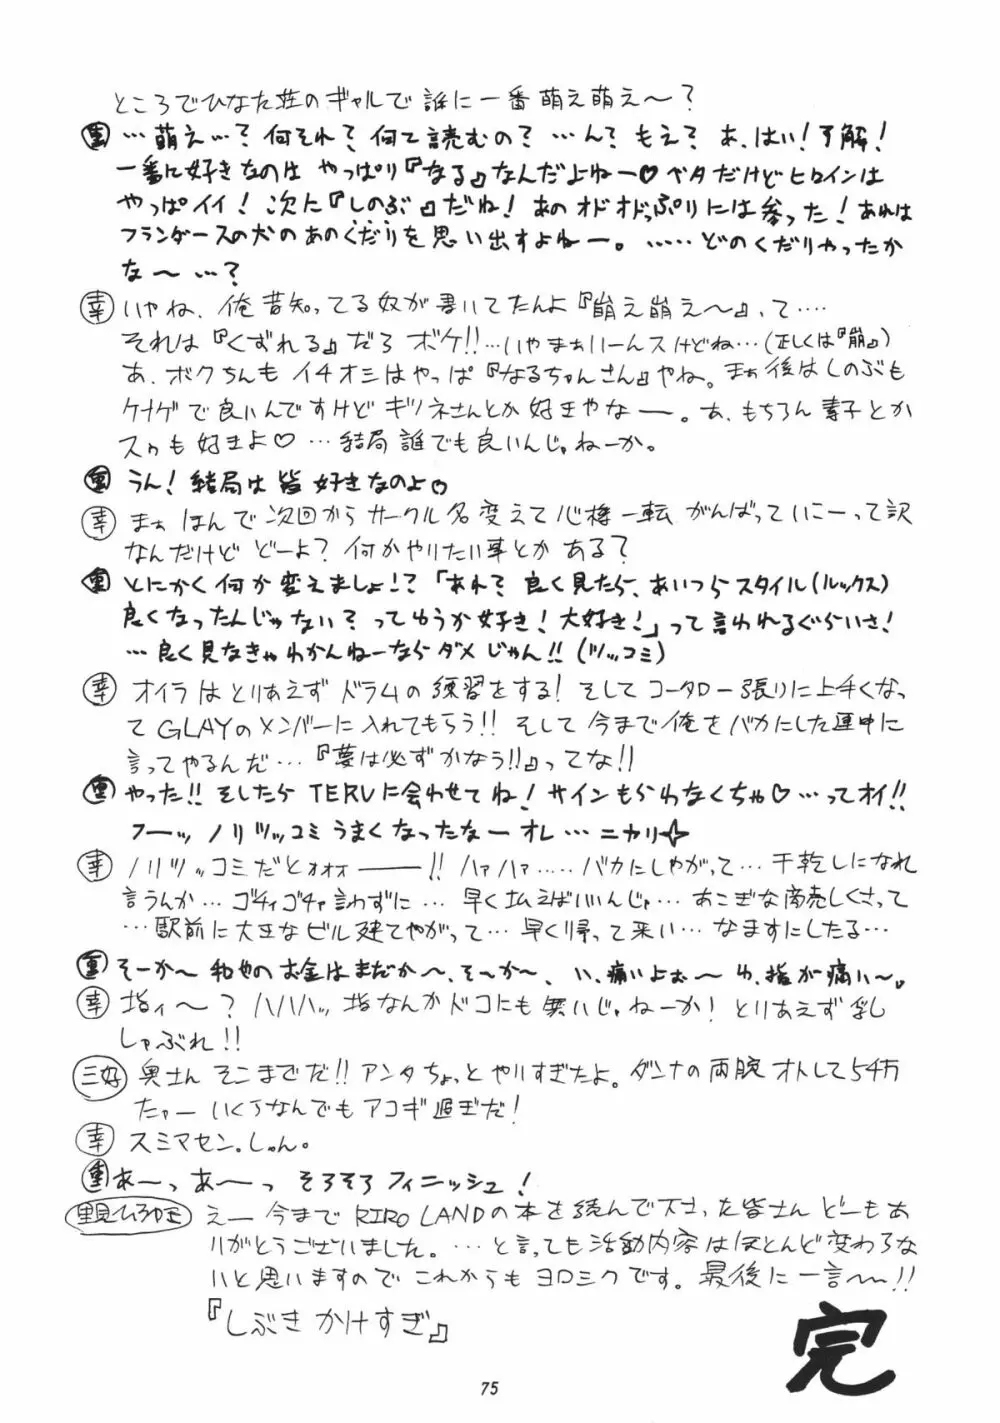 ところでひなた荘のギャルで誰に一番萌え萌え～?
…萌え…?何それ?何て読むの?…ん?もえ?あ、はい!了解!
一番に好きなのは やっぱり『なる』なんだよねー♡ベタだけどヒロインは
やっぱイイ! 次に『しのぶ』だね!あのオドオドっぷりには参った!あれは
フランダースの犬のあのくだりを思い出すよねー。……どのくだりやったか
な～…?
幸 いやね、俺昔知ってる奴が書いてたんよ『崩え崩え～』って‥‥
それは『くずれる』だろ ボケ!!…いやまぁいーんスけどね…(正しくは『崩』)
あ、ボクちんも イチオシはやっぱ『なるちゃんさん』やね。まぁ後はしのぶも
ケナゲで良いんですけど キツネさんとか好きやなー。あ、もちろん素子とか
スゥも好きよ♡…結局誰でも良いんじゃねーか。
うん!結局は皆好きなのよ♡
幸 まぁほんで次回からサークル名変えて心機一転がんばっていこーって訳
なんだけど どーよ?何かやりたい事とかある?
とにかく何か変えましょ!?「あれ?良く見たら、あいつらスタイル(ルックス)
良くなったんじゃない?ってゆうか好き!大好き!」って言われるぐらいさ!
…良く見なきゃわかんねーならダメじゃん!!(ツッコミ)
幸 オイラはとりあえずドラムの練習をする!そしてコータロー張りに上手くなっ
てGLAYのメンバーに入れてもらう!!そして今まで俺をバカにした連中に
言ってやるんだ…『夢は必ずかなう!!』ってな!!
やった!!そしたらTERUに会わせてね!サインもらわなくちゃ♡…ってオイ!!
フーッ ノリツッコミうまくなったなー オレ…ニカリ☆
幸 ノリツッコミだとォォォ――!!ハァハァ‥‥バカにしやがって…干乾しになれ
言うんか…ゴチャゴチャ言わずに…早く払えばいいんじゃ…あこぎな商売しくさって
…駅前に大きなビル建てやがって…早く帰って来い…なますにしたる…
そーか～ 和也のお金はまだか～、そ～か～、い、痛いよぉ～ ゆ、指が痛い～。
幸 指ィ～?ハハハッ、指なんかドコにも無いじゃねーか!とりあえず乳
しゃぶれ!!
三好 奥さん そこまでだ!!アンタちょっとやりすぎたよ。ダンナの両腕オトして54万
たァー いくらなんでもアコギ過ぎだ!
幸 スミマセン。しゅん。
あーっ あ～っ そろそろフィニッシュ!
里見ひろゆき えー今までRIRO LANDの本を読んで下さった皆さんどーもあ
りがとうございました。…と言っても活動内容はほとんど変わらな
いと思いますのでこれからもヨロシクです。最後に一言～!!
『しぶき かけすぎ』
完
75